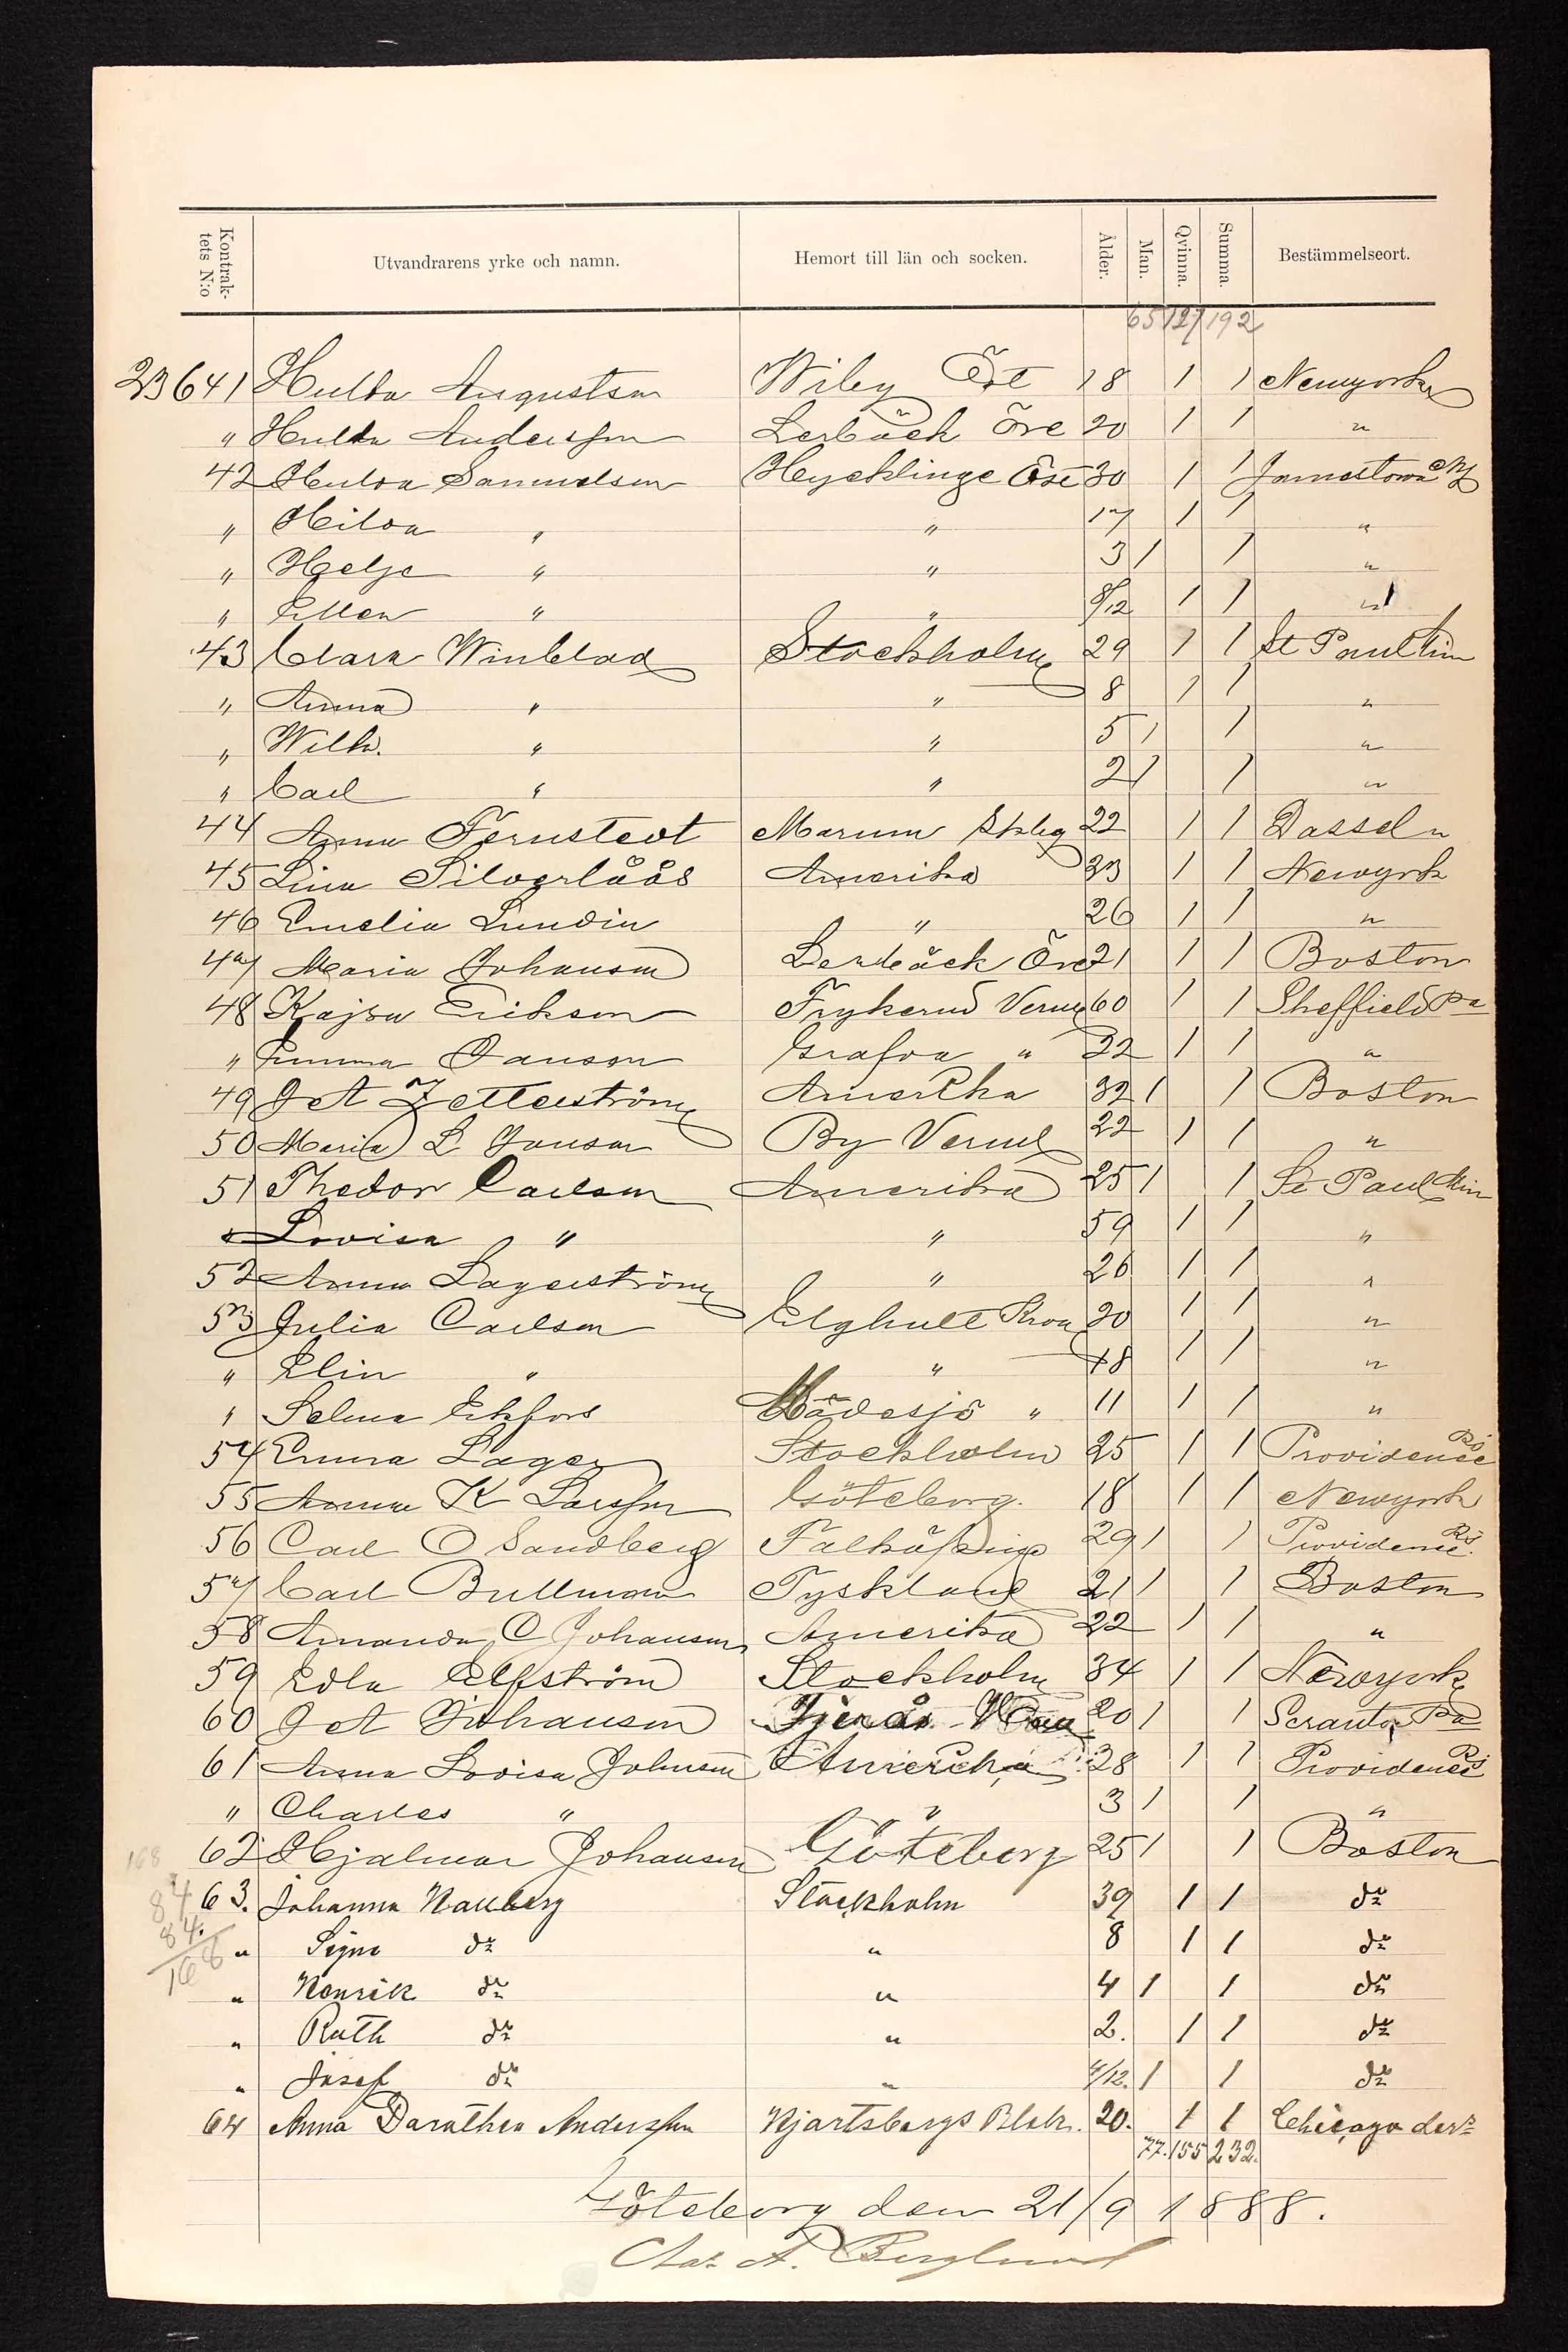 Kontrak-
tets N:o
Utvandrarens yrke och namn.
Hemort till län och socken.
Ålder.
Man.
Qvinna.
Summa.
Bestämmelseort.
65 127 192
23641 Hulda Augustson Wiby Öre 18 1 1 Newyork
" Hulda Andersson Lerbäck Öre 20 1 1 "
42 Hulda Samuelson Heycklinge Öst 30 1 1 Jamestown NY
" Hilda " " 17 1 1 "
" Helge " " 3 1 1 "
" Ellen " " 8/12 1 1 "
43 Clara Winblad Stockholm 29 1 1 St Paul Min
" Anna " " 8 1 1 "
" Wilh. " " 5 1 1 "
" Carl " " 2 1 1 "
44 Anna Fernstedt Marum Skbg 22 1 1 Dassel "
45 Lina Silverlåås Amerika 23 1 1 Newyork
46 Emelia Lundin " 26 1 1 "
47 Maria Johanson Lerbäck Öre 21 1 1 Boston
48 Kajsa Erikson Frykerud Verml 60 1 1 Sheffield Pa
" Emma Janson Grafva " 22 1 1 "
49 J A Zetterström Amerika 32 1 1 Boston
50 Maria L Janson By Verml 22 1 1 "
51 Thedor Carlson Amerika 25 1 1 St Paul Min
" Lovisa " " 59 1 1 "
52 Anna Lagerström " 26 1 1 "
53 Julia Carlson Elghult Kron 20 1 1 "
" Elin " " 18 1 1 "
" Selma Ekfors Mådesjö " 11 1 1 "
54 Emma Lager Stockholm 25 1 1 Providence RI
55 Anna K Larsson Göteborg. 18 1 1 Newyork
56 Carl O Sandberg Falköping 29 1 1 Providence RI
57 Carl Bullman Tyskland 21 1 1 Boston
58 Amanda C Johanson Amerika 22 1 1 "
59 Edla Elfström Stockholm 34 1 1 Newyork
60 J A Johanson Fjerås 20 1 1 Scranton Pa
61 Anna Lovisa Johnson Amerika 28 1 1 Providence RI
" Charles " " 3 1 1 "
168 62 Hjalmar Johanson Göteborg 25 1 1 Boston
84 63. Johanna Hallberg Stockholm 39 1 1 do
84. " Signe do " 8 1 1 do
168 " Henrik do " 4 1 1 do
" Ruth do " 2. 1 1 do
" Josef do " 4/12. 1 1 do
64 Anna Dorothea Andersson Hjartsbergs 20. 1 1 Chicago
77. 155 232.
Göteborg den 21/9 1888.
A. Berglund